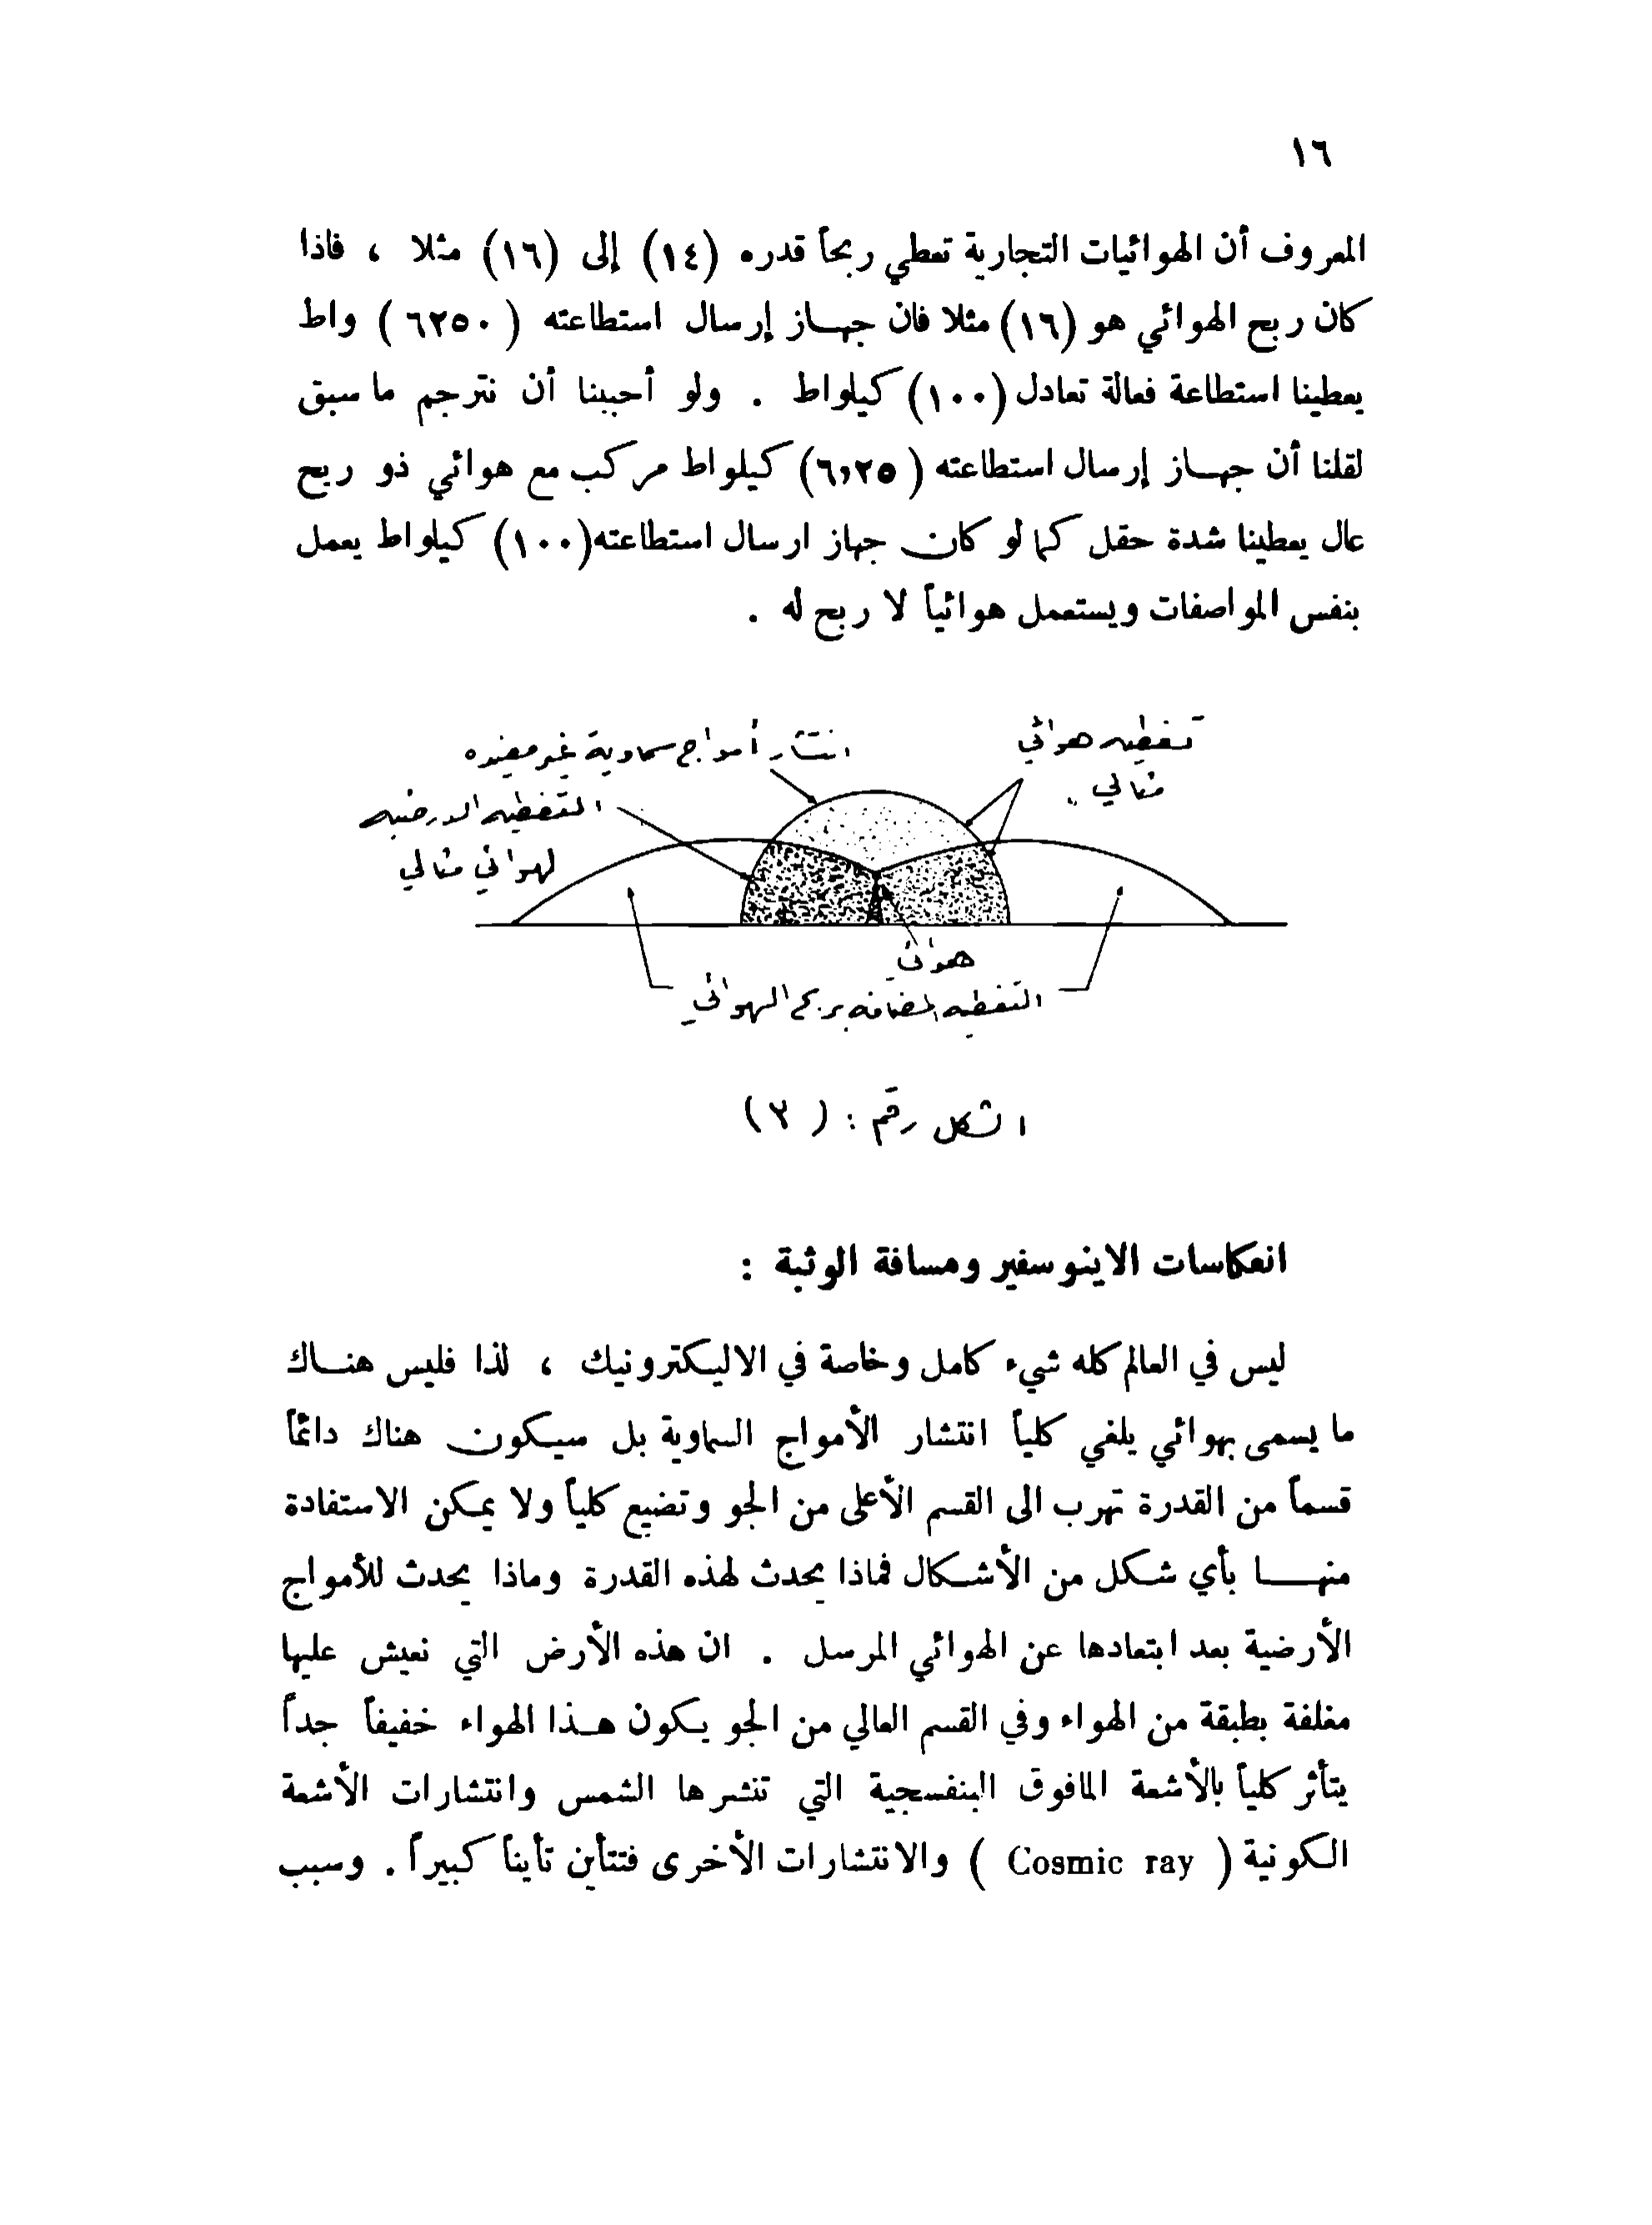 ١٦
المعروف أن الهوائيات التجارية تعطي ربحاً قدره (١٤) إلى (١٦) مثلا ، فاذا
كان ربح الهوائي هو (١٦) مثلا فان جهاز إرسال استطاعته ( ٦٢٥٠ ) واط
يعطينا استطاعة فعالة تعادل (١٠٠) كيلواط . ولو أحببنا أن نترجم ما سبق
لقلنا أن جهاز إرسال استطاعته ( ٦،٢٥) كيلواط مركب مع هوائي ذو ربح
عال يعطينا شدة حقل كما لو كان جهاز ارسال استطاعته(١٠٠) كيلواط يعمل
بنفس المواصفات ويستعمل هوائياً لا ربح له .
تغطيه هوائي
مثالي
انتشار أمواج سماوية غير مفيده
التغطيه الارضيه
لهوائي مثالي
هوائي
التغطيه المضافه بربح الهوائي
الشكل رقم : ( ٢ )
انعكاسات الاينوسفير ومسافة الوثبة :
ليس في العالم كله شيء كامل وخاصة في الاليكترونيك ، لذا فليس هناك
ما يسمى بهوائي يلغي كلياً انتشار الأمواج السماوية بل سيكون هناك دائماً
قسماً من القدرة تهرب الى القسم الأعلى من الجو وتضيع كلياً ولا يمكن الاستفادة
منها بأي شكل من الأشكال فماذا يحدث لهذه القدرة وماذا يحدث للأمواج
الأرضية بعد ابتعادها عن الهوائي المرسل . ان هذه الأرض التي نعيش عليها
مغلفة بطبقة من الهواء وفي القسم العالي من الجو يكون هذا الهواء خفيفاً جداً
يتأثر كلياً بالأشعة المافوق البنفسجية التي تنشرها الشمس وانتشارات الأشعة
الكونية ( Cosmic ray ) والانتشارات الأخرى فتتأين تأيناً كبيراً . وسبب